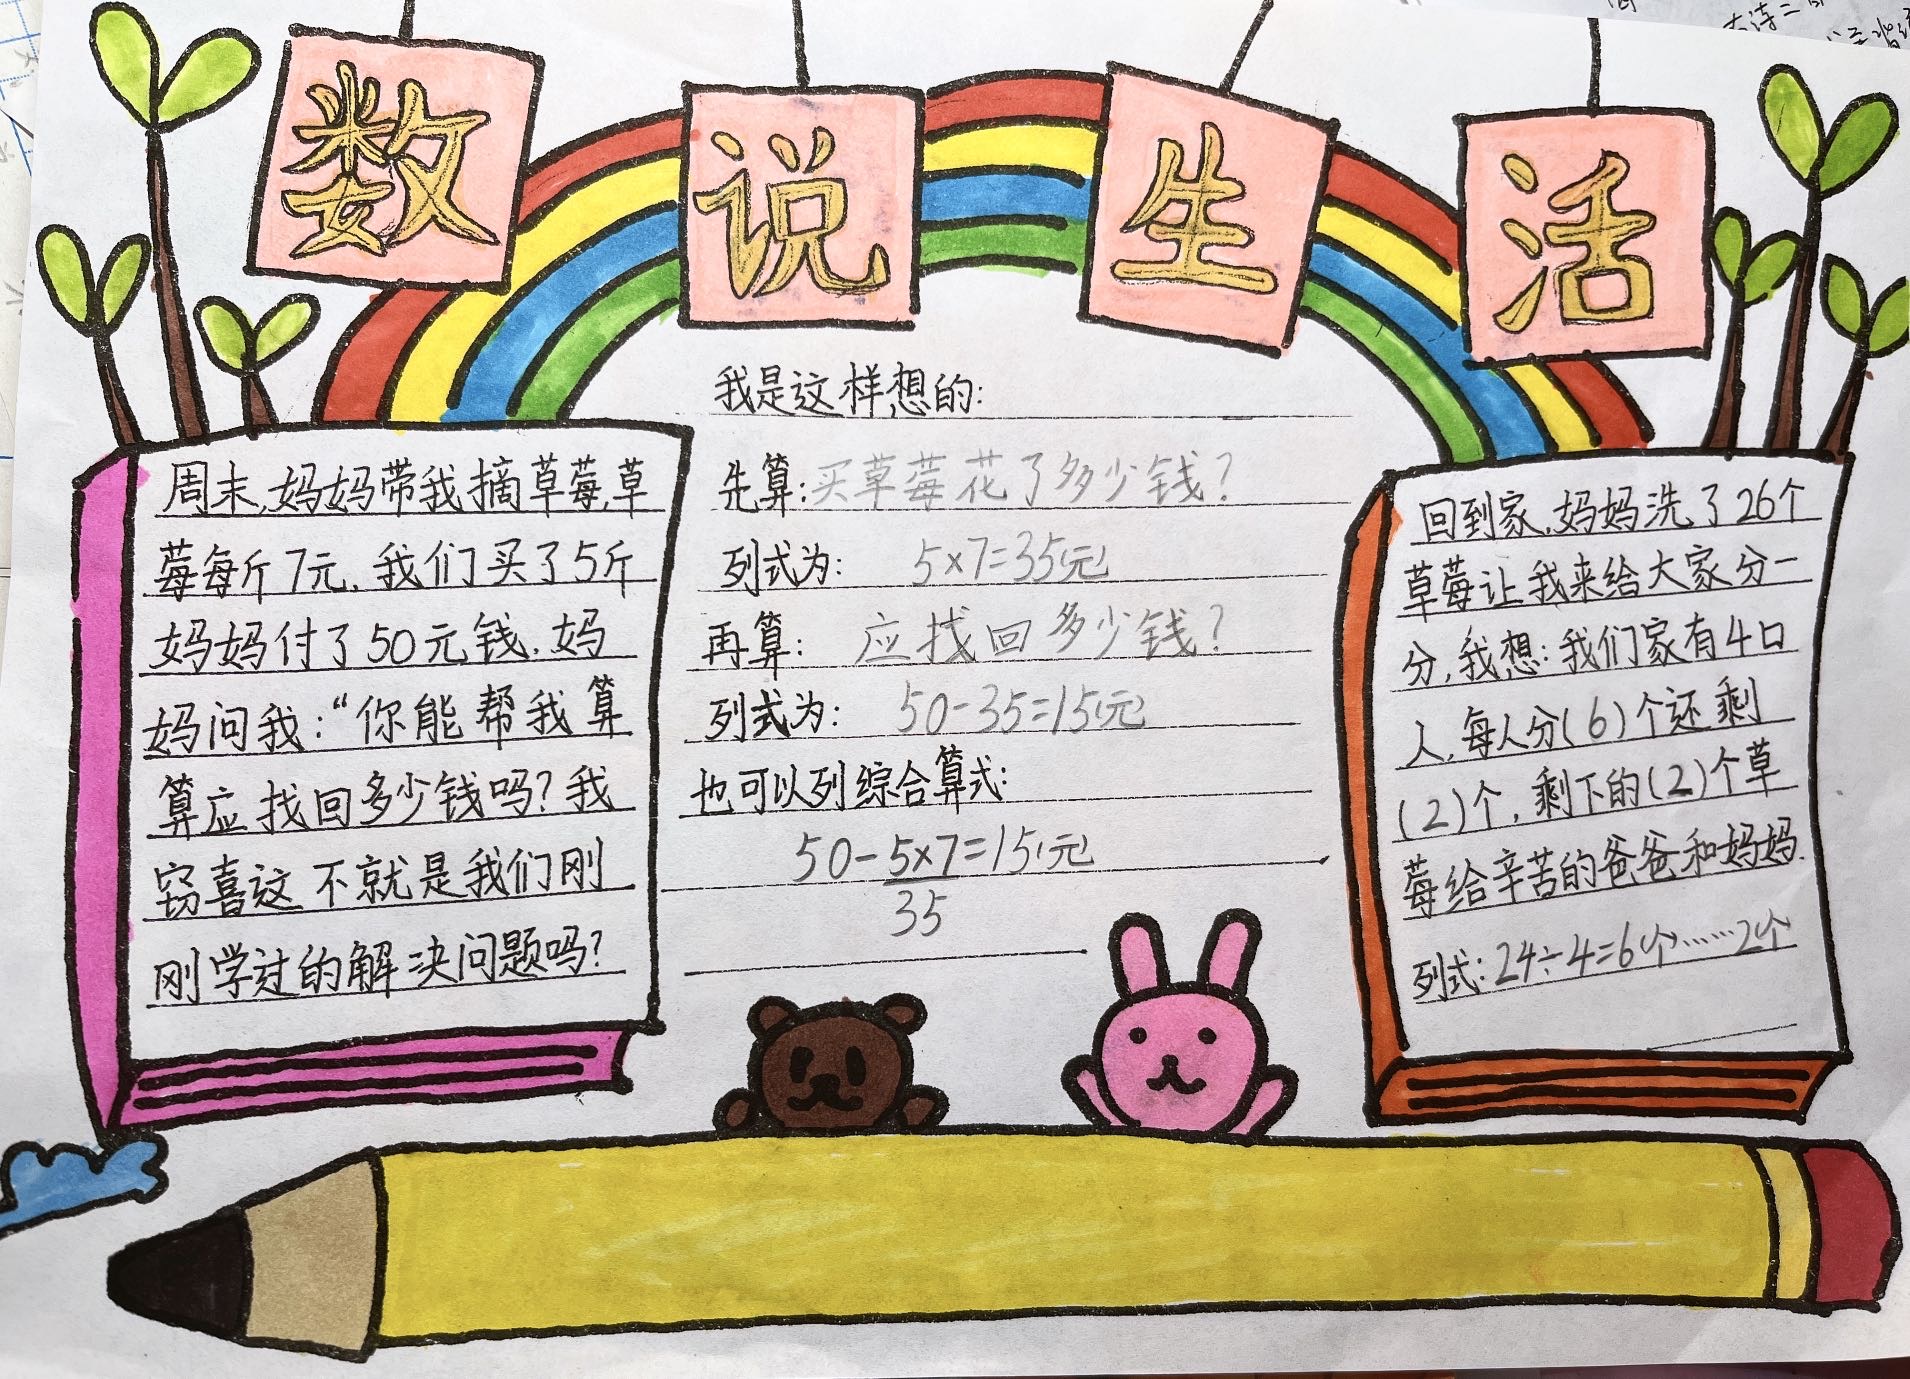 数说生活
周末,妈妈带我摘草莓,草
莓每斤7元,我们买了5斤
妈妈付了50元钱.妈
妈问我:“你能帮我算
算应找回多少钱吗?我
窃喜这不就是我们刚
刚学过的解决问题吗?
我是这样想的:
先算:买草莓花了多少钱?
列式为: 5×7=35(元
再算: 应找回多少钱?
列式为: 50-35=15(元
也可以列综合算式:
50-5×7=15(元
35
回到家,妈妈洗了26个
草莓让我来给大家分一
分,我想:我们家有4口
人,每人分(6)个还剩
(2)个,剩下的(2)个草
莓给辛苦的爸爸和妈妈.
列式:24÷4=6个……2个